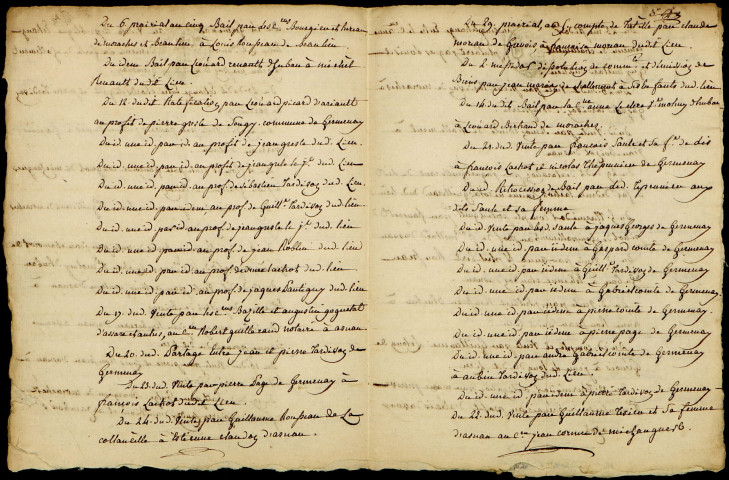 Du 6 prairial an cinq Bail par les Cens Bourgien et
de moraches et Beaulieu, à Louis houpeau de beaulieu.
Du idem Bail par Léonard renault d'huban à michel
Renault dudit Lieu.
Du 12 dudit Ratification par Léonard picard d'ariault
au profit de pierre groste de Sougy, commune de Germenay
Du id. une id. par id. au profit de jean groste du d. Lieu.
Du id. une id. par id. au profit de jean groste le je dud. Lieu
Du id. une id. par id. au profit de Sébastien Tardivos dud. Lieu.
Du id. une id. par idem au prof. de Guille Tardivos dud. lieu
Du id. une id. par id. au prof. de jean groste le je dud. lieu
Du id. une id. par id. au prof. de jean Roblin dud. lieu
Du id. une id. par id. au prof. de Lachot dud. lieu
Du id. une id. par id. au prof. de jaques Pautigny dud. lieu
Du 17. dud. Vente par les Cens Bazille et augustin goguelat
d'asnan, au Cen Robert guillerand notaire à asnan.
Du 20. dud. Partage entre jean et pierre Tardivos de
Germenay
Du 23. dud. Vente par pierre Page de Germenay à
françois Lachot dudit Lieu.
Du 24. dud. Vente par Guillaume houpeau de La
collancelle à Etienne claudos d'asnan.
Du 29. prairial, an 5. compte de Tutelle par claude
moreau de Grenois à françoise moreau dudit Lieu
Du 2 messidor dissolution de commté et démission de
Biens par jean marie de Lallemant à dud. lieu
Du 14 dudit Bail par la Cne anne d'huban
à Léonard Bertrand de moraches.
Du 21. dud. Vente par françois Saule et sa fe de
à françois Lachot et nicolas Thépénier de Germenay
Du id. Rétrocession de Bail par led. Lépenier aux
dits Saule et sa femme
Du id. Vente par led. Saule à jaques Georges de Germenay
Du id. une id. par idem à Gaspard comte de Germenay
Du id. une id. par idem à Guille Tardivos de Germenay
Du id. une id. par idem à Gabriel comte de Germenay.
Du id. une id. par idem à pierre comte de Germenay
Du id. une id. par idem à pierre page de Germenay
Du id. une id. par andré Gabriel comte de Germenay
à aubin Tardivos dud. Lieu.
Du id. une id. par idem à pierre Tardivos de Germenay
Du 22. dud. Vente par Guillaume Texier et sa femme
d'asnan au Cen jean cornu de michaugues